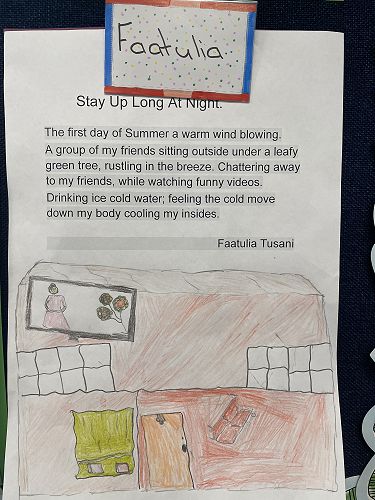 Faatulia
Stay Up Long At Night.
The first day of Summer a warm wind blowing.
A group of my friends sitting outside under a leafy
green tree, rustling in the breeze. Chattering away
to my friends, while watching funny videos.
Drinking ice cold water; feeling the cold move
down my body cooling my insides.
Faatulia Tusani